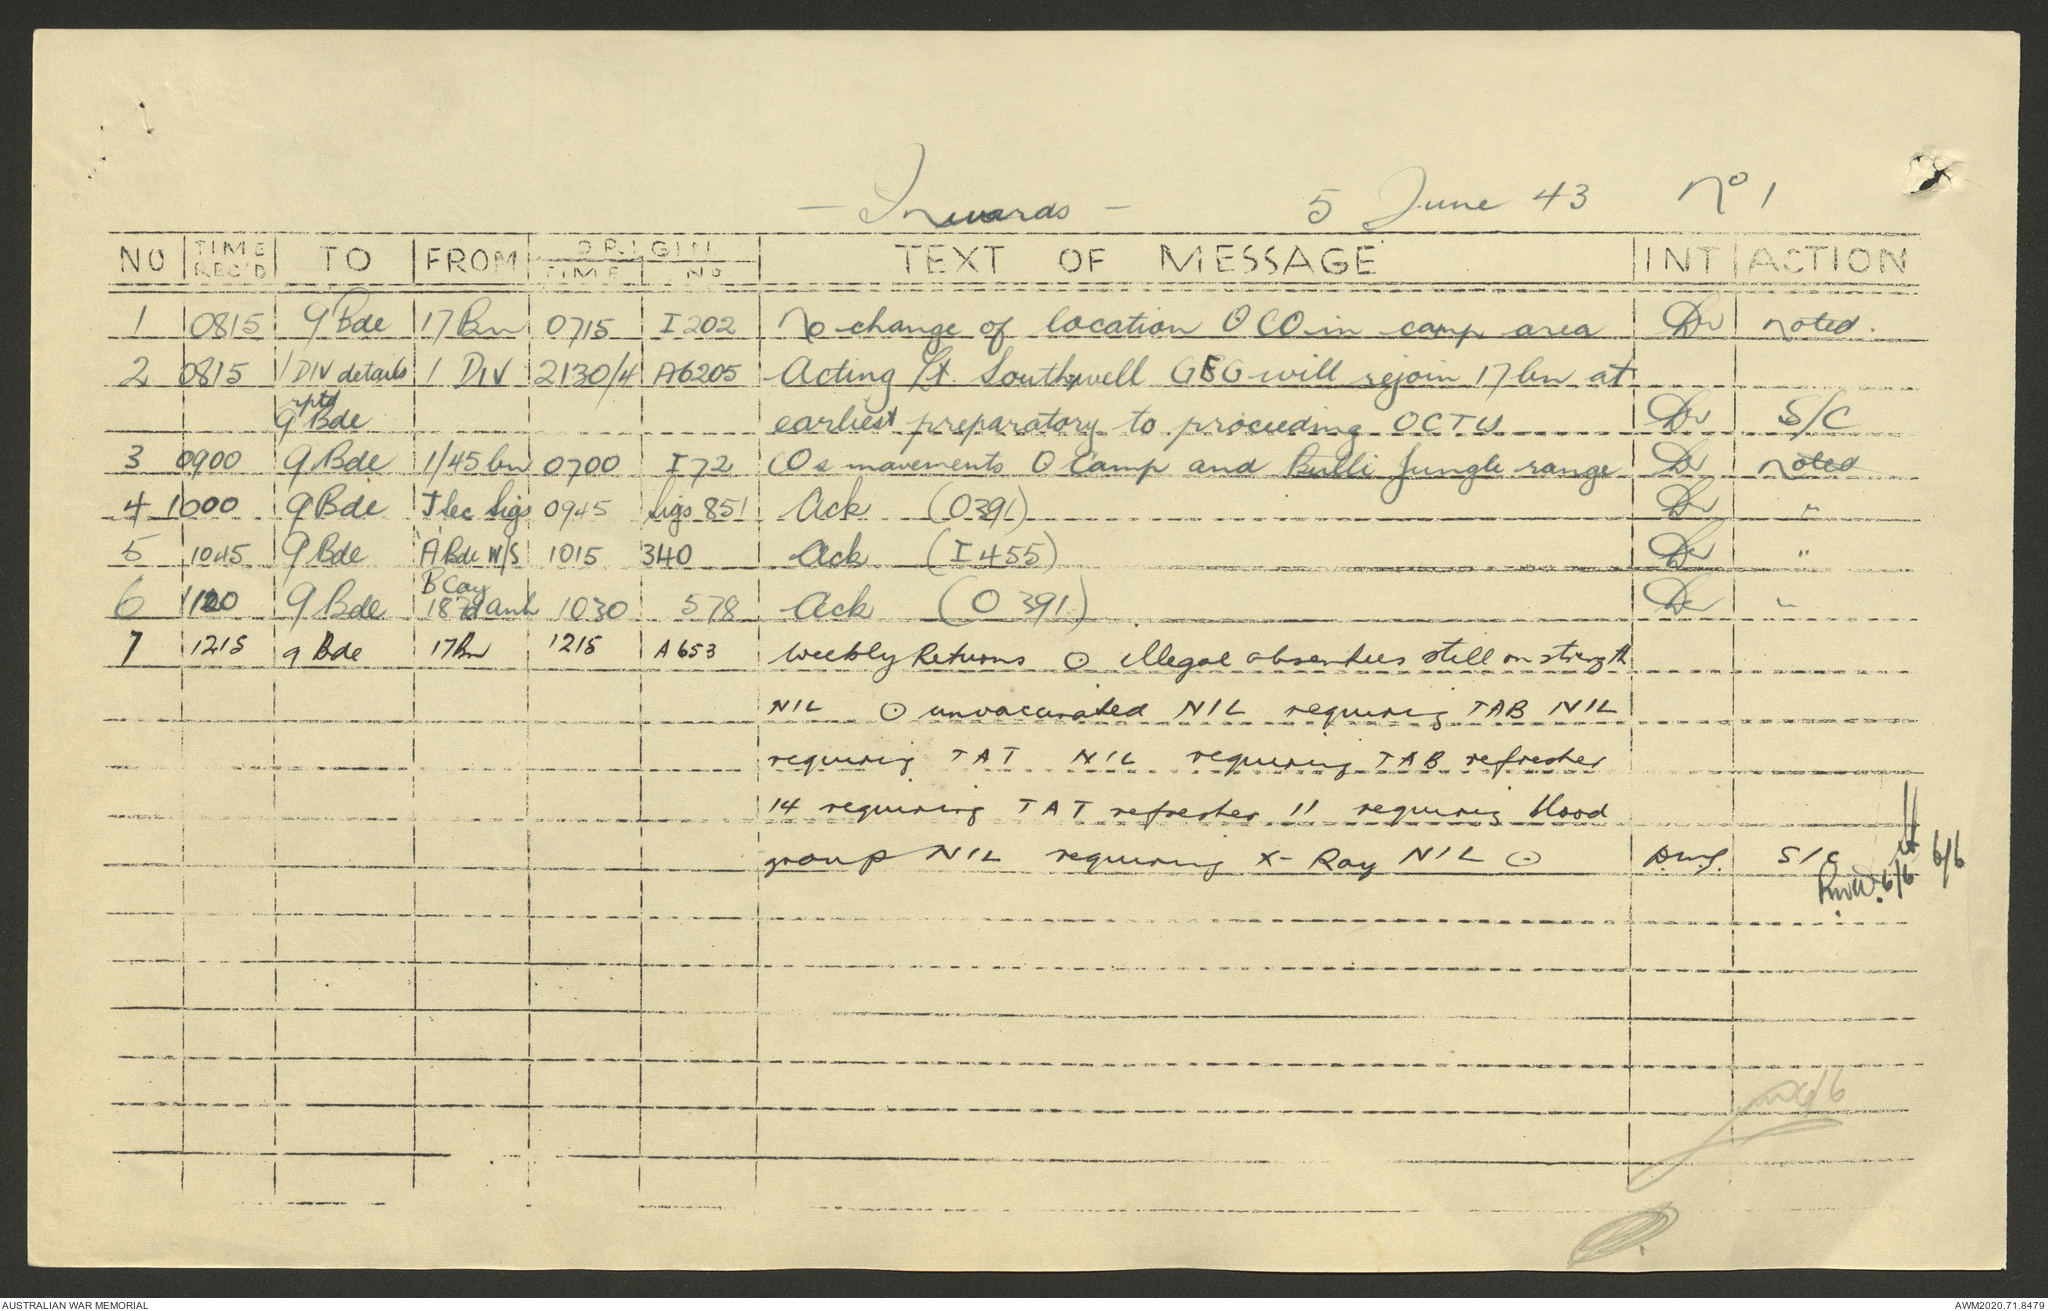 - Inwards - 5 June 43 No 1
NO | TIME REC'D | TO | FROM | ORIGIN TIME | ORIGIN No | TEXT OF MESSAGE | INT | ACTION
1 | 0815 | 9 Bde | 17 Bn | 0715 | I 202 | No change of location ⊙ CO in camp area | | noted.
2 | 0815 | 1 DIV details | 1 DIV | 2130/4 | A6205 | Acting Lt Southwell GEG will rejoin 17 bn at
rptd 9 Bde | earliest preparatory to proceeding OCTU | | S/C
3 | 0900 | 9 Bde | 1/45 bn | 0700 | I 72 | COs movements ⊙ Camp and Bulli Jungle range | | noted
4 | 1000 | 9 Bde | J Sec Sigs | 0945 | Sigs 851 | Ack (O391) | | "
5 | 1045 | 9 Bde | A Bde W/S | 1015 | 340 | Ack (I 455) | | "
6 | 1120 | 9 Bde | B Coy 18 Fd Amb | 1030 | 578 | Ack (O 391) | | "
7 | 1215 | 9 Bde | 17 Bn | 1215 | A 653 | Weekly Returns ⊙ illegal absentees still on strength
NIL ⊙ unvaccinated NIL requiring TAB NIL
requiring TAT NIL requiring TAB refresher
14 requiring TAT refresher 11 requiring blood
group NIL requiring X-Ray NIL ⊙ | | S/C 6/6
6/6
6/6
AUSTRALIAN WAR MEMORIAL
AWM2020.71.8479